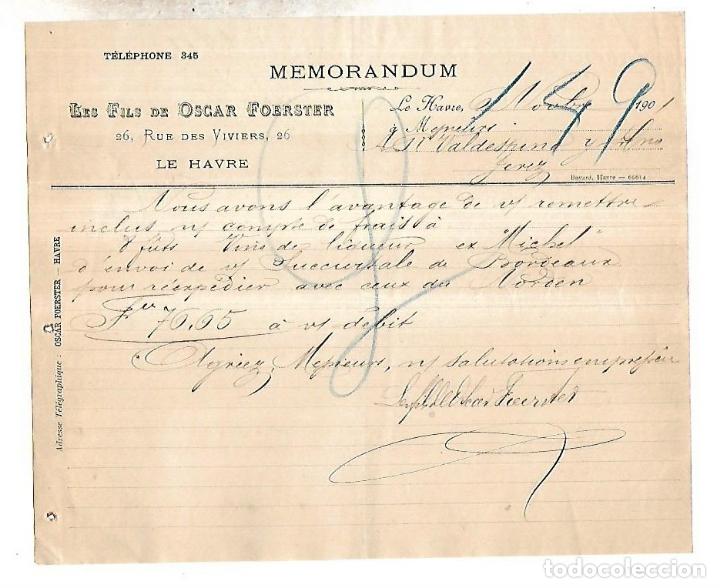 TÉLÉPHONE 345
MEMORANDUM
LES FILS DE OSCAR FOERSTER
26, RUE DES VIVIERS, 26
LE HAVRE
Le Havre, 9 Novbre 1901
à Messieurs
Valdespino y Hno
Jerez
Bayard, Havre — 66614
Nous avons l'avantage de vs remettre
inclus n/ compte de frais à
8 fûts Vins de liqueur ex "Michel"
d'envoi de v/ Succursale de Bordeaux
pour réexpédier avec ceux du
Frs 76.65 à v/ débit
Agréez, Messieurs, n/ salutations empressées
Les fils de Oscar Foerster
Adresse Télégraphique : OSCAR FOERSTER — HAVRE
todocoleccion